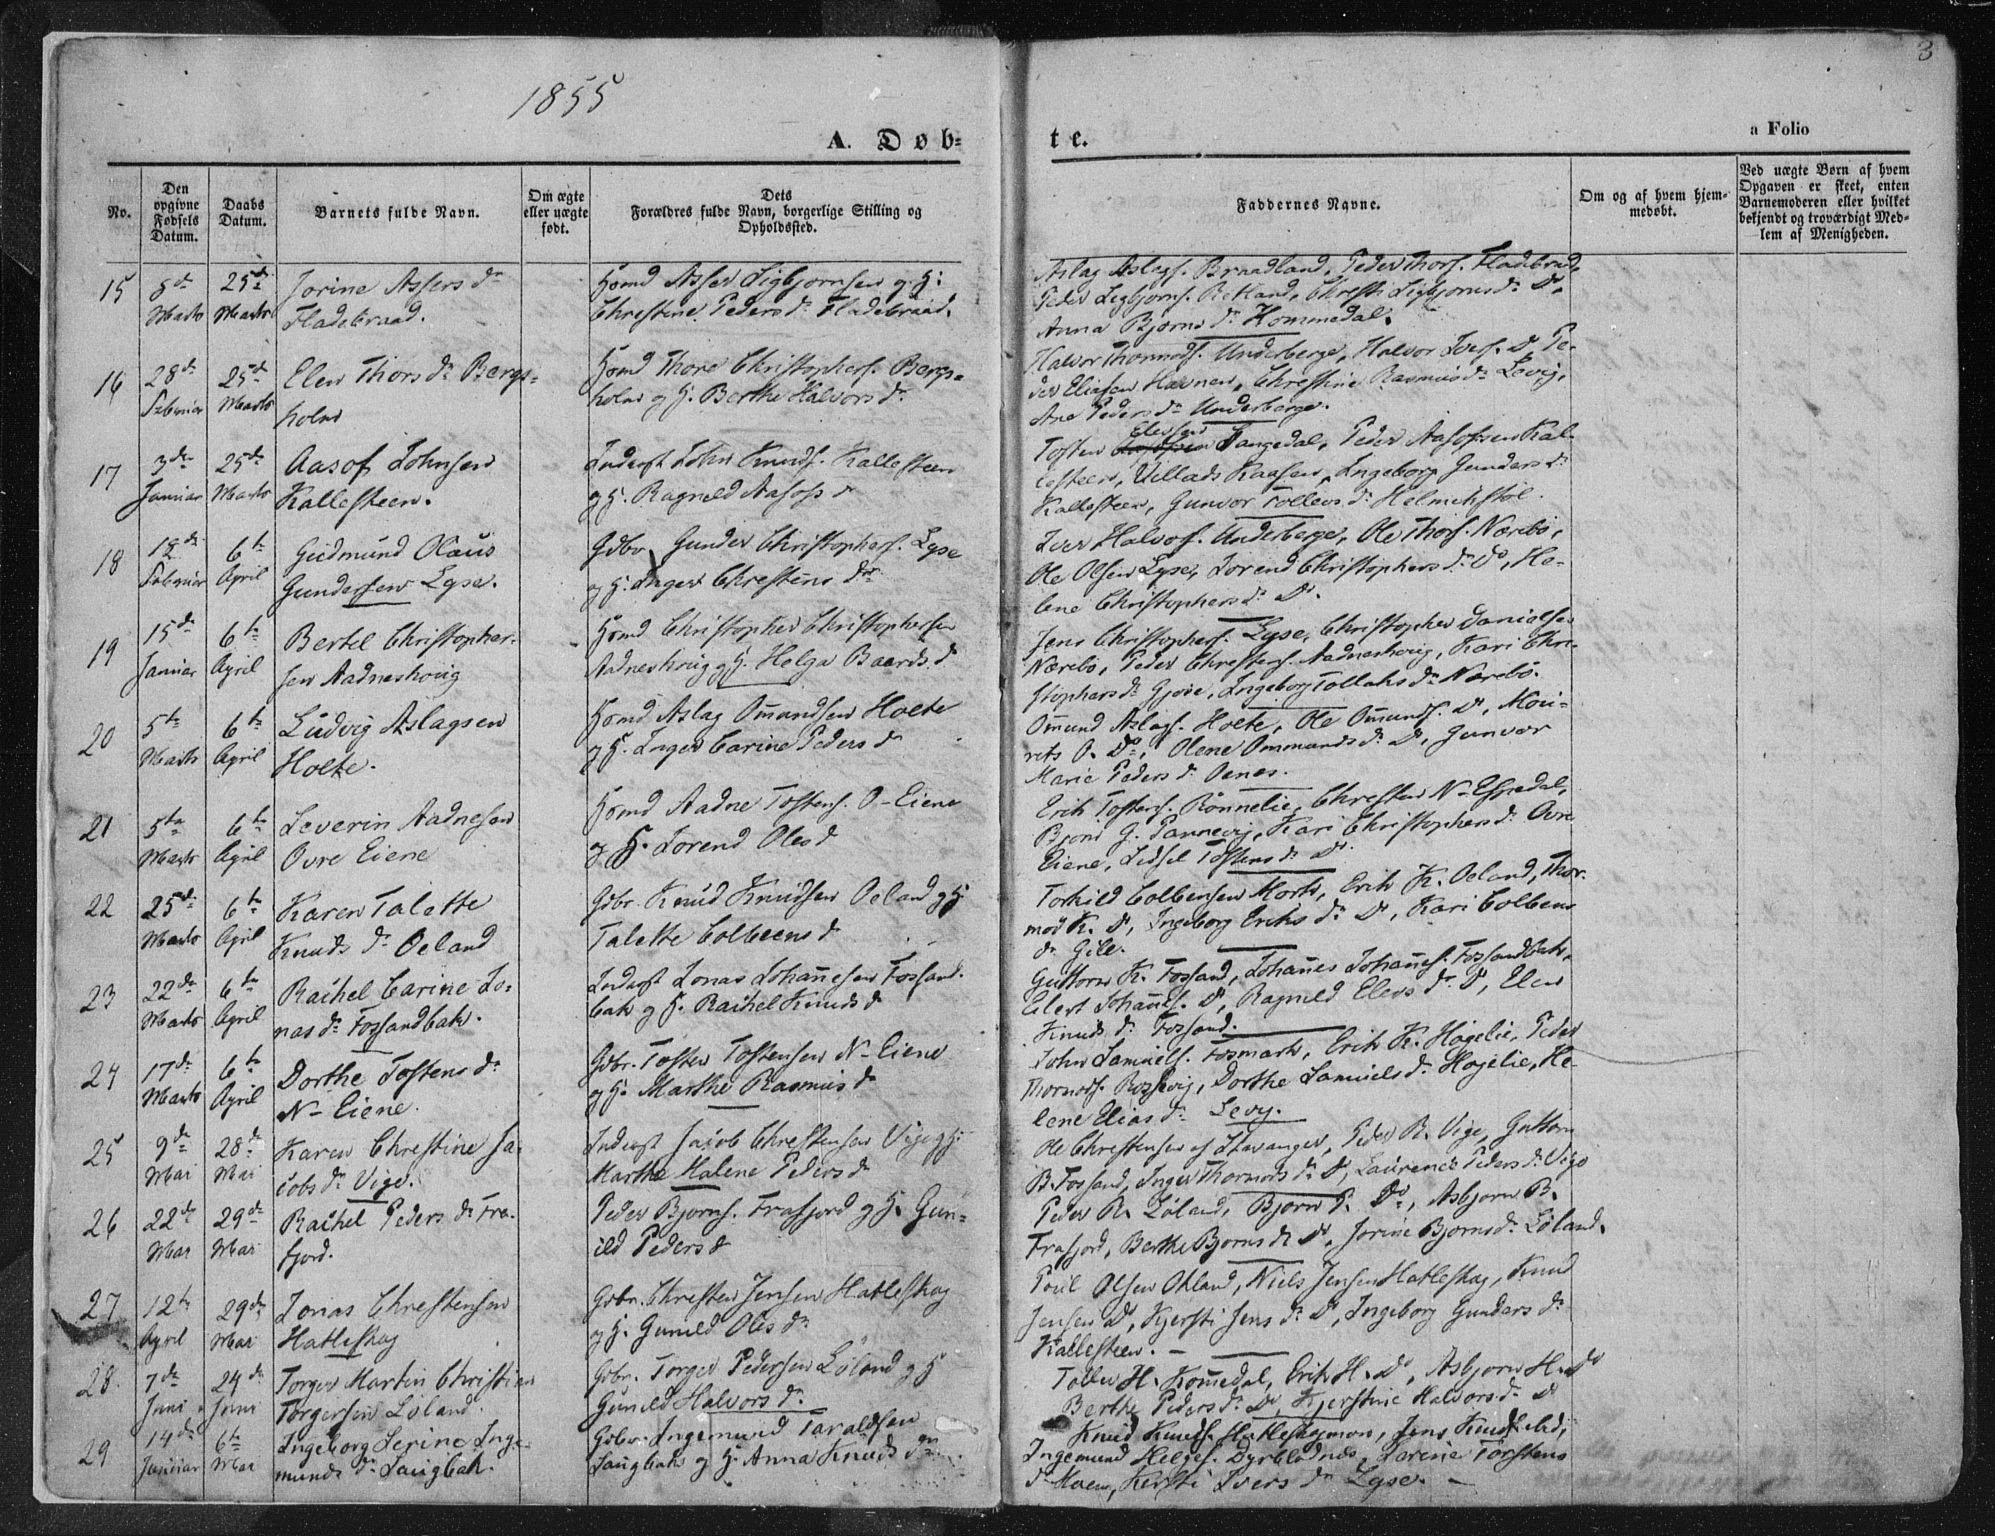 1855
3
A. Døb-
te.
a Folio
No.
Den opgivne Fødsels Datum.
Daabs Datum.
Barnets fulde Navn.
Om ægte eller uægte født.
Dets Forældres fulde Navn, borgerlige Stilling og Opholdssted.
Faddernes Navne.
Om og af hvem hjemmedøbt.
Ved uægte Børn af hvem Opgaven er skeet, enten Barnemoderen eller hvilket bekjendt og troværdigt Medlem af Menigheden.
15
8de Marts
25de Marts
Jorine Assersdr
Fladebraad.
Hsmd Asser Sigbjørnsen og H:
Chrestine Pedersdr Fladebraad.
Aslag Aslags. Braadland, Peder Thors. Fladebraad,
Peder Sigbjørns. Retland, Chresti Sigbjørnsdr Do,
Anna Bjørnsdr Kommedal.
16
28de Februar
25de Marts
Elen Thorsdr Bergs-
holm
Hsmd Thore Christophers. Bergs-
holm og H. Berthe Halvorsdr
Halvor Thormods. Underberge, Halvor Ivers. Do, Pe-
der Eliasen Havnen, Chrestine Rasmusdr Levig,
Ane Pedersdr Underberge.
17
3de Januar
25de Marts
Aasof Johnsen
Kallesteen.
Inderst John Knuds. Kallesteen
og H. Ragnild Aasofsdr
Tosten Elessen Sangedal, Peder Aasofsen Kal-
lesteen, Villads Kaasen, Ingeborg Gundersdr
Kallesteen, Gunvor Tollevsdr Helmikstøl.
18
18de Februar
6te April
Gudmund Olaus
Gundersen Lyse.
Gdbr. Gunder Christophers. Lyse
og H. Inger Chrestensdr
Iver Halvors. Underberge, Ole Thors. Nærebø,
Ole Olsen Lyse, Lorend Christophersdr Do, He-
lene Christophersdr Do.
19
15de Januar
6te April
Bertel Christopher-
sen Aadneshoug
Hsmd Christopher Christophersen
Aadneshoug og H. Helga Baardsdr
Jens Christophers. Lyse, Christopher Danielsen
Nærebø, Peder Chresters. Aadneshoug, Kari Chri-
stophersdr Gjøse, Ingeborg Tollaksdr Nærebø.
20
5te Marts
6te April
Ludvig Aslagsen
Holte.
Hsmd Aslag Omundsen Holte
og H. Inger Carine Pedersdr
Omund Aslags. Holte, Ole Omunds. Do, Mou-
rets O. Do, Olene Ommundsdr Do, Gunvor
Marie Pedersdr Oenes.
21
5te Marts
6te April
Severin Aadnesen
Øvre Eiene
Hsmd Aadne Tostens. Ø-Eiene
og H. Lorend Olesdr
Erik Tostens. Rønnelie, Chresten N-Espedal,
Bjørn G. Pannevig, Kari Christophersdr Øvre
Eiene, Sidsel Tostensdr Do.
22
25de Marts
6te April
Karen Talette
Knudsdr Oeland
Gdbr. Knud Knudsen Oeland og H.
Talette Colbeensdr
Torkild Colbensen Mork, Erik K. Oeland, Thor-
mod K. Do, Ingeborg Eriksdr Do, Kari Colbens
dr Gile.
23
22de Marts
6te April
Rachel Carine Jo-
nasdr Fossandbak.
Inderst Jonas Johannesen Fossand-
bak og H. Rachel Knudsdr
Guttorm K. Fossand, Johannes Johannes. Fossandbak,
Eilert Johannes. Do, Ragnild Elevsdr Do, Elen
Knudsdr Fossand.
24
17de Marts
6te April
Dorthe Tostensdr
N-Eiene.
Gdbr. Tosten Tostensen N-Eiene
og H. Marthe Rasmusdr
John Samuels. Fosmark, Erik K. Høgelie, Peder
Thormods. Rossevig, Dorthe Samuelsdr Høgelie, He-
lene Eliasdr Levy.
25
9de Mai
28de Mai
Karen Chrestine Ja-
cobsdr Vige.
Inderst Jacob Chrestensen Vige og H:
Marthe Malene Pedersdr
Ole Chrestensen af Stavanger, Peder R. Vige, Guttorm
B. Fossand, Inger Thormodsdr Do, Laurence Pedersdr Vige
26
22de Mai
29de Mai
Rachel Pedersdr Fra-
fjord.
Peder Bjørns. Frafjord og H. Gun-
ild Pedersdr
Peder R. Løland, Bjørn P. Do, Asbjørn B.
Frafjord, Berthe Bjørnsdr Do, Jorine Bjørnsdr Løland.
27
12te April
29de Mai
Jonas Chrestensen
Hatleskog
Gdbr. Chresten Jensen Hatleskog
og H. Gunild Olesdr
Poul Olsen Okland, Niels Jensen Hatleskog, Knud
Jensen Do, Kjersti Jensdr Do, Ingeborg Gundersdr
Kallesteen. —
28
7de Juni
24de Juni
Torger Martin Christian
Torgersen Løland.
Gdbr. Torger Pedersen Løland og H
Gunild Halvorsdr.
Tollev H. Komedal, Erik H. Do, Asbjørn H. Do
Berthe Pedersdr Do, Kjerstine Halvorsdr Do
29
14de Januar
6te Mai
Ingeborg Serine Inge-
mundsdr Laugbak.
Gdbr. Ingemund Taraldsen
Laugbak og H. Anna Knudsdr
Knud Knuds. Hatleskogmon,
Ingemund Helges. Dyrblodnes, Karine Torstens
dr Moen, Kersti Iversdr Lyse. —